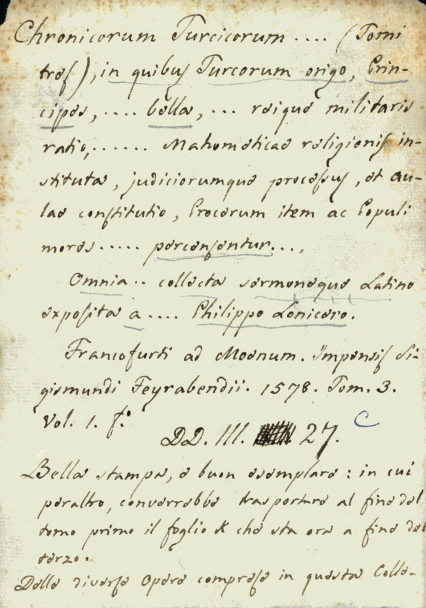 Chronicorum Turcicorum .... (Tomi
tres), in quibus Turcorum origo, Prin-
cipes, .... bella, ... reique militaris
ratio, ...... Mahometicae religionis in-
stituta, judiciorumque processus, et au-
lae constitutio, Procerum item ac Populi
mores ..... percensentur....
Omnia .. collecta sermoneque Latino
exposita a .... Philippo Lonicero.
Francofurti ad Moenum. Impensis Si-
gismundi Feyrabendii. 1578. Tom. 3.
Vol. 1. f.°
DD. III. 27. C
Bella stampa, e buon esemplare: in cui
peraltro, converrebbe trasportare al fine del
tomo primo il foglio K che sta ora a fine del
terzo.
Delle diverse Opere comprese in questa Colle-